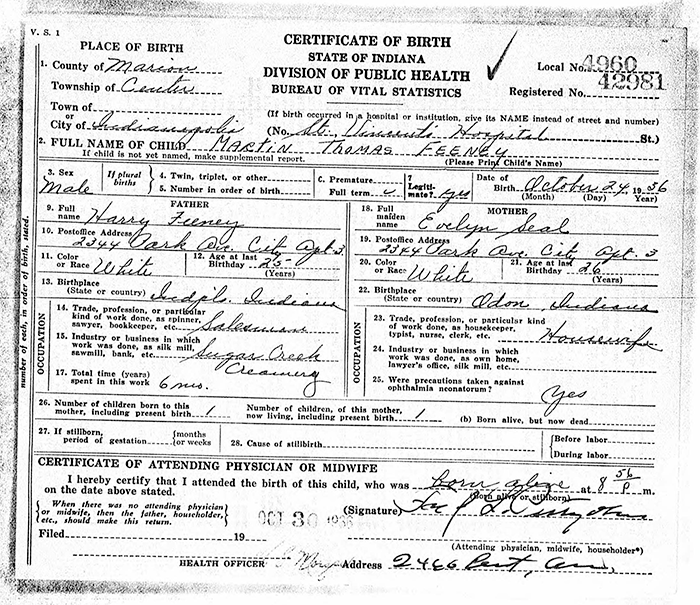 V. S. 1
PLACE OF BIRTH
CERTIFICATE OF BIRTH
STATE OF INDIANA
DIVISION OF PUBLIC HEALTH
BUREAU OF VITAL STATISTICS
Local No. 4960
Registered No. 42981
1. County of Marion
Township of Center
Town of
or
City of Indianapolis
(If birth occurred in a hospital or institution, give its NAME instead of street and number)
(No. St. Vincents Hospital St.)
2. FULL NAME OF CHILD MARTIN THOMAS FEENEY
If child is not yet named, make supplemental report. (Please Print Child's Name)
3. Sex Male
If plural births
4. Twin, triplet, or other
5. Number in order of birth
6. Premature
Full term
7 Legitimate? yes
Date of Birth October 24, 1936
(Month) (Day) Year)
FATHER
9. Full name Harry Feeney
10. Postoffice Address 2344 Park Av. City Apt. 3
11. Color or Race White
12. Age at last Birthday 25 (Years)
13. Birthplace (State or country) Indpls. Indiana
MOTHER
18. Full maiden name Evelyn Seal
19. Postoffice Address 2344 Park Av. City Apt. 3
20. Color or Race White
21. Age at last Birthday 26 (Years)
22. Birthplace (State or country) Odon, Indiana
OCCUPATION
14. Trade, profession, or particular kind of work done, as spinner, sawyer, bookkeeper, etc. Salesman
15. Industry or business in which work was done, as silk mill, sawmill, bank, etc. Sugar Creek Creamery
17. Total time (years) spent in this work 6 mo.
OCCUPATION
23. Trade, profession, or particular kind of work done, as housekeeper, typist, nurse, clerk, etc. Housewife
24. Industry or business in which work was done, as own home, lawyer's office, silk mill, etc.
25. Were precautions taken against ophthalmia neonatorum? Yes
number of each, in order of birth, stated.
26. Number of children born to this mother, including present birth 1
Number of children, of this mother, now living, including present birth 1
(b) Born alive, but now dead
27. If stillborn, period of gestation {months or weeks
28. Cause of stillbirth
{Before labor
{During labor
CERTIFICATE OF ATTENDING PHYSICIAN OR MIDWIFE
I hereby certify that I attended the birth of this child, who was born alive at 8 56 P m.
on the date above stated. (Born alive or stillborn)
{When there was no attending physician or midwife, then the father, householder, etc., should make this return.}
OCT 30 1936
(Signature)
Filed 19
(Attending physician, midwife, householder*)
HEALTH OFFICER
Address 2466